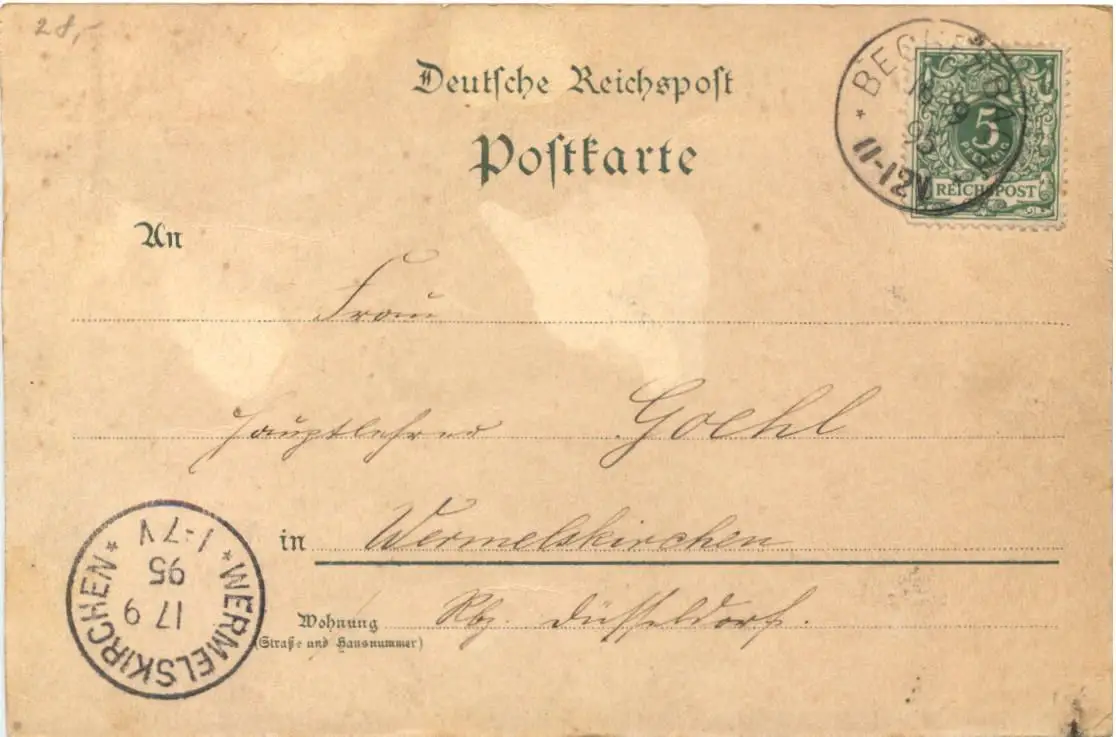 28,-
Deutsche Reichspost
Postkarte
5
PFENNIG
REICHSPOST
95
11-12V
An
Frau
Hauptlehrer Goehl
in Wermelskirchen
Wohnung Rbz. Düsseldorf.
(Straße und Hausnummer)
* WERMELSKIRCHEN *
17 9
95
1-7V